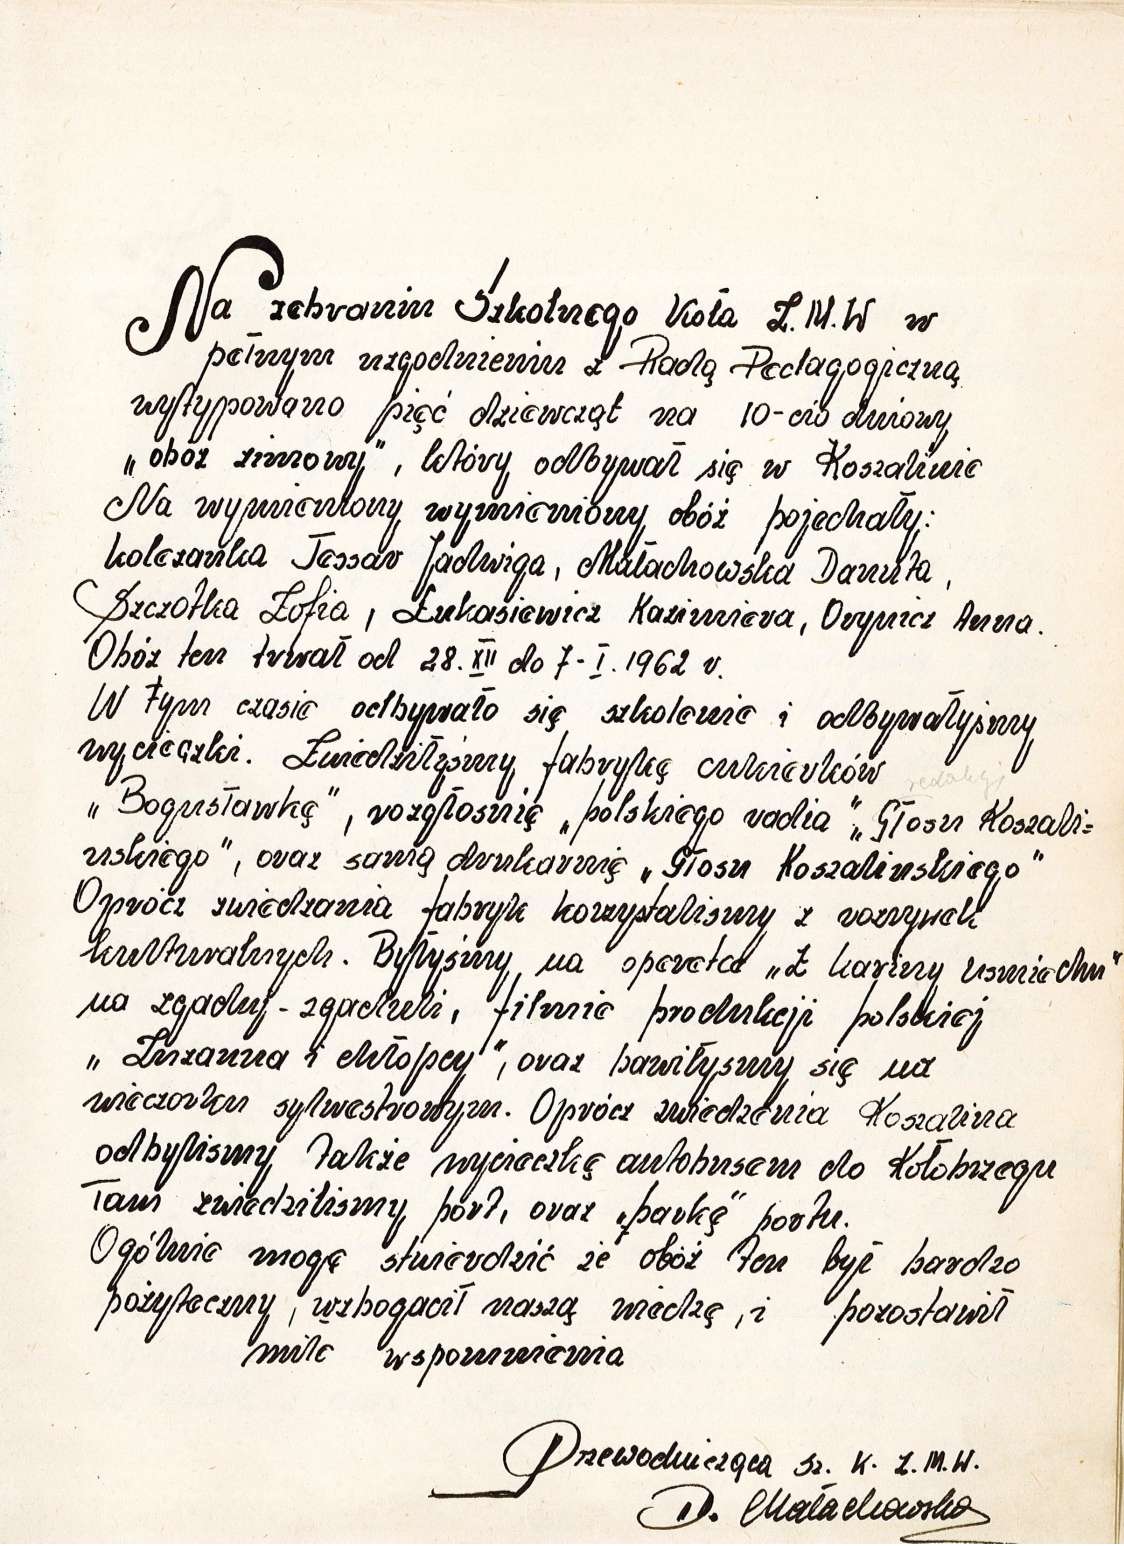 Na zebraniu Szkolnego Koła Z.M.W w
pełnym uzgodnieniu z Radą Pedagogiczną
wytypowano pięć dziewcząt na 10-cio dniowy
„obóz zimowy", który odbywał się w Koszalinie
Na wymieniony wymieniony obóz pojechały:
koleżanka Tessar Jadwiga, Małachowska Danuta,
Szczotka Zofia, Łukasiewicz Kazimiera, Orynicz Anna.
Obóz ten trwał od 28.XII do 7-I.1962 r.
W tym czasie odbywało się szkolenie i odbywałyśmy
wycieczki. Zwiedziłyśmy fabrykę cukierków
redakcji
„Bogusławkę", rozgłośnię „polskiego radia" „Głosu Koszali=
nskiego", oraz samą drukarnię „Głosu Koszalinskiego"
Oprócz zwiedzania fabryk korzystalismy z rozrywek
kulturalnych. Byłyśmy na operetce „Z krainy usmiechu"
na zgaduj-zgaduli, filmie produkcji polskiej
„Zuzanna i chłopcy", oraz bawiłysmy się na
wieczorku sylwestrowym. Oprócz zwiedzenia Koszalina
odbylismy także wycieczkę autobusem do Kołobrzegu
Tam zwiedzilismy port, oraz „parkę" portu.
Ogólnie mogę stwierdzić że obóż ten był bardzo
pożyteczny, wzbogacił naszą wiedzę, i pozostawił
miłe wspomnienia
Przewodnicząca Sz. K. Z.M.W.
D. Małachowska